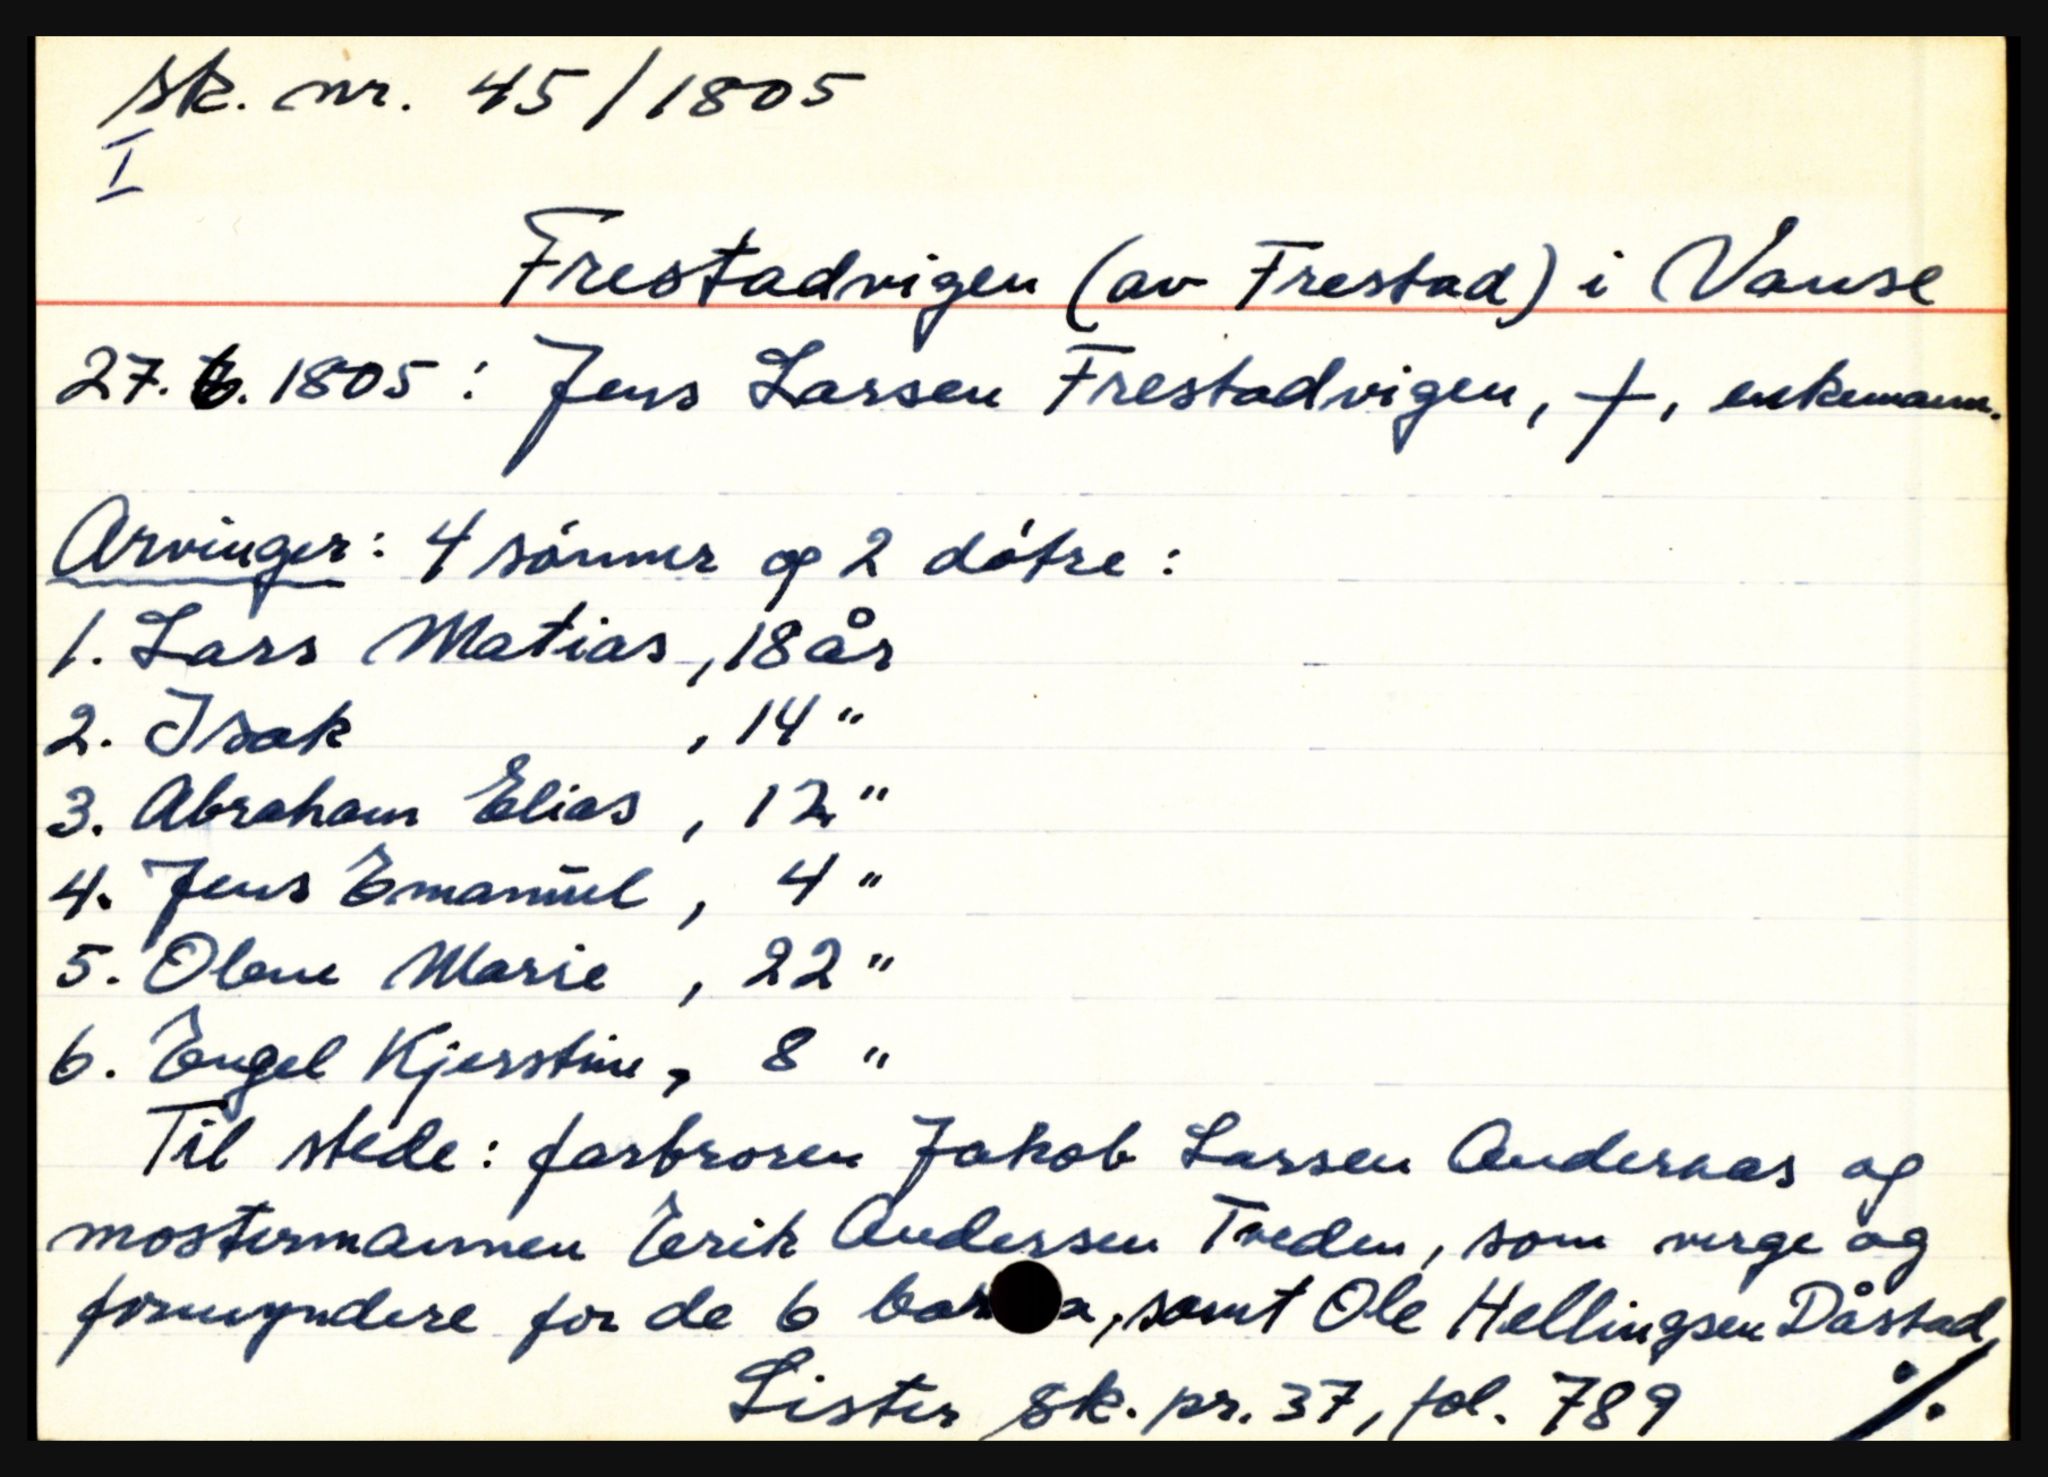 sk. nr. 45/1805
I
Frestadvigen (av Frestad) i Vanse
27. 6. 1805: Jens Larsen Frestadvigen, +, enkemann.
Arvinger: 4 sónner og 2 dótre:
1. Lars Matias, 18 år
2. Isak , 14 "
3. Abraham Elias, 12 "
4. Jens Emanuel, 4 "
5. Olene Marie, 22 "
6. Engel Kjerstine, 8 "
Til stede: farbroren Jakob Larsen Andersaas og
mostermannen Erik Andersen Tveden, som verge og
formyndere for de 6 barna, samt Ole Hellingsen Dåstad,
Lister sk. pr. 37, fol. 789 ./.